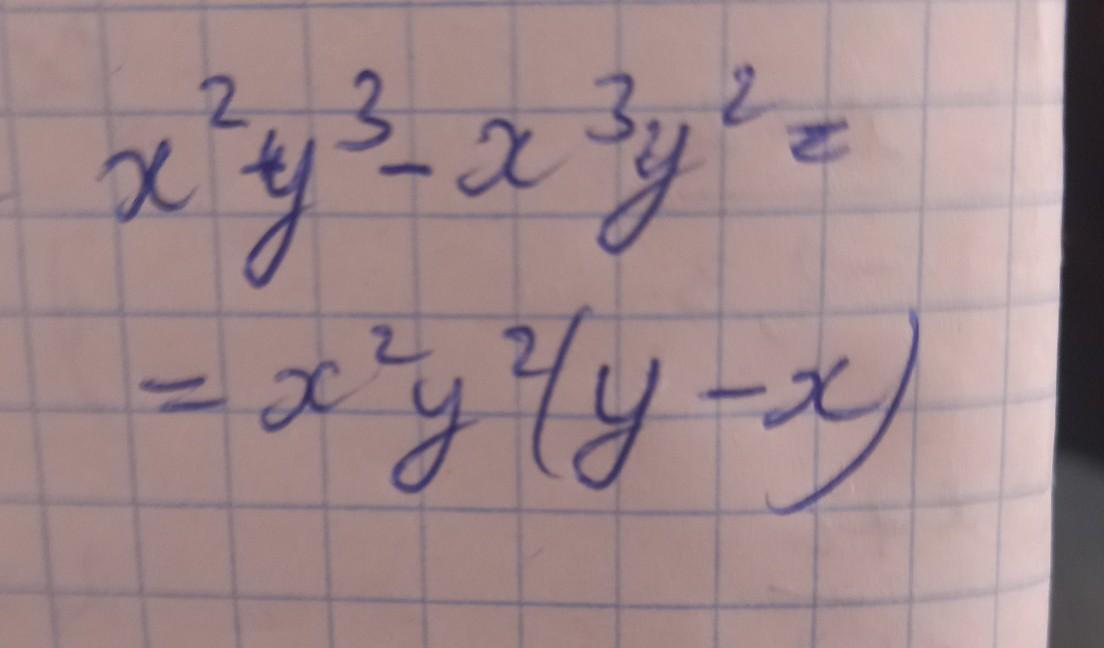 x²y³ - x³y² =
= x²y²(y - x)